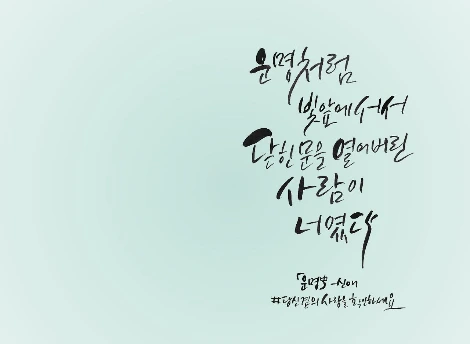 운명처럼
빛앞에 서서
닫힌 문을 열어버린
사람이
너였다
「운명」 -신애
#당신곁의 사랑을 확인하세요